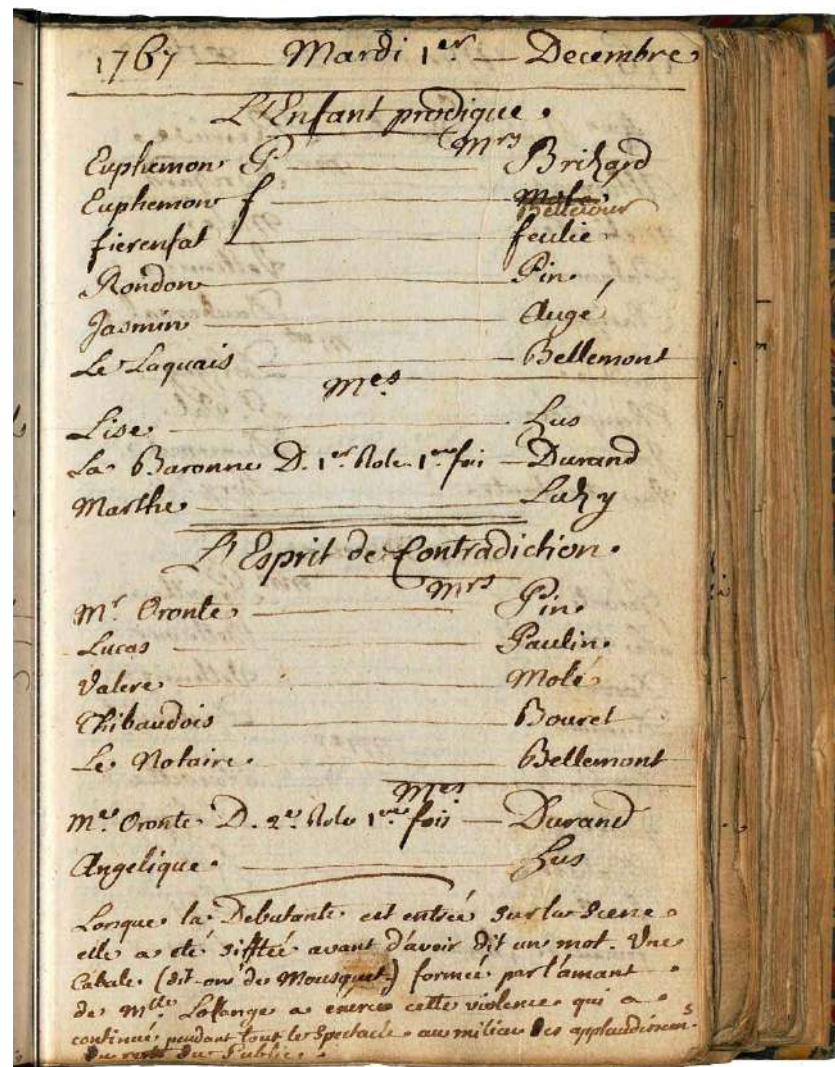 1767 — Mardi 1er — Decembre
L'Enfant prodigue.
Mrs
Euphemon P — Brizard
Euphemon f — Molé Bellecour
fierenfat — feulie
Rondon — Pin.
Jasmin — Augé
Le Laquais — Bellemont
Mes
Lise — Hus
La Baronne D. 1er Role 1ere foi — Durand
Marthe — Luzy
L'Esprit de Contradiction.
Mrs
Mr Oronte — Pin.
Lucas — Paulin.
Valere — Molé
Thibaudois — Bouret
Le Notaire. — Bellemont
Mes
Me Oronte D. 2e Role 1ere fois — Durand
Angelique. — Hus
Lorsque la Debutante est entrée sur la Scene
elle a été sifflée avant d'avoir dit un mot. Une
Cabale (dit-on de Mousquet.) formée par l'amant
de Mlle Lallange a exercé cette violence qui a
continué pendant tout le Spectacle au milieu des applaudissemens
du reste du Public.